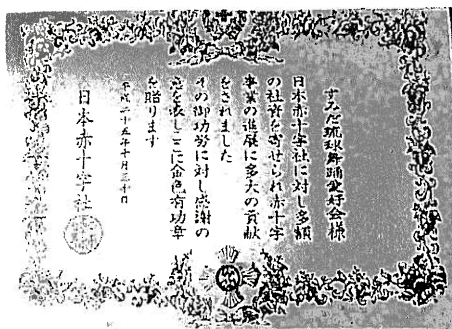 すみだ琉球舞踊愛好会様
日本赤十字社に対し多額
の社資を寄せられ赤十字
事業の進展に多大の貢献
をされました
その御功労に対し感謝の
意を表しここに金色有功章
を贈ります
平成二十五年十月三十日
日本赤十字社